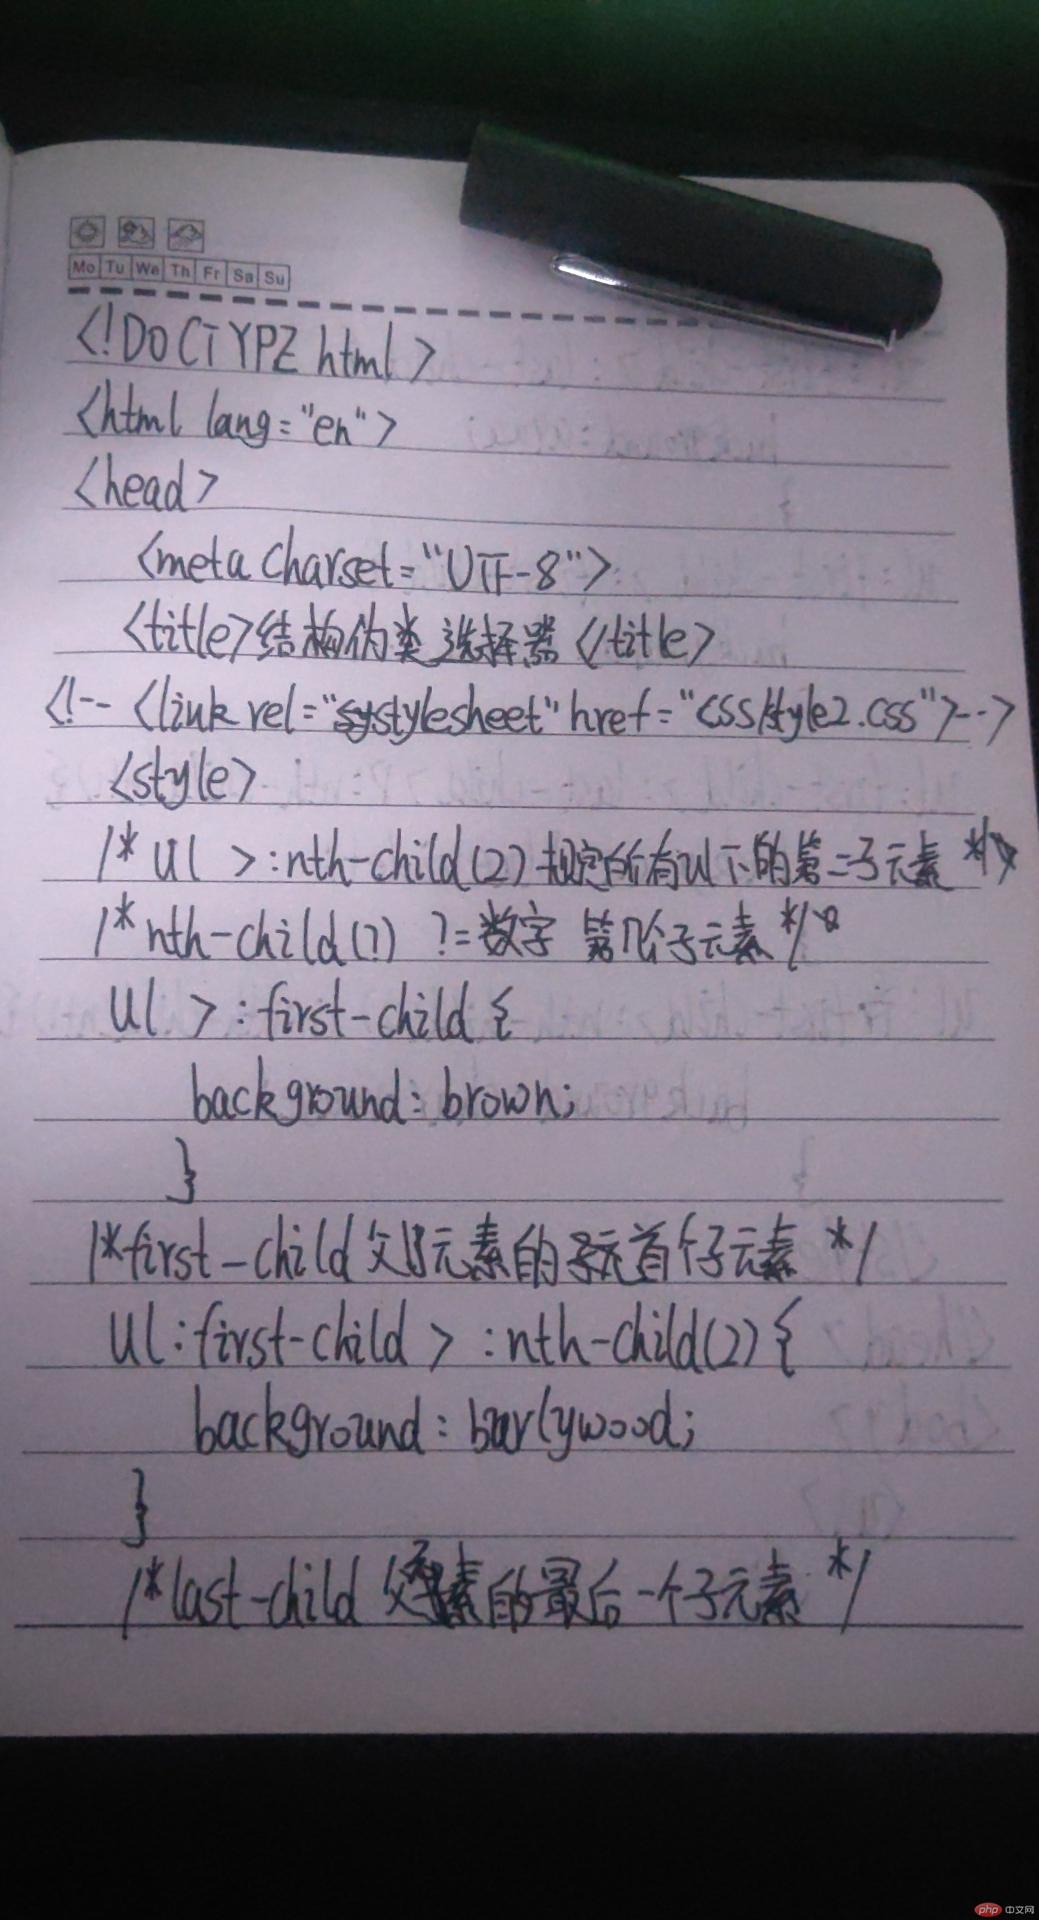 Mo Tu We Th Fr Sa Su
<!DOCTYPZ html>
<html lang="en">
<head>
<meta charset="UTF-8">
<title>结构伪类选择器</title>
<!-- <link rel="stylesheet" href="css/style2.css">-->
<style>
/* ul >:nth-child(2) 规定所有ul下的第二子元素 */
/* nth-child(?) ?=数字 第几个子元素 */
ul >:first-child {
background: brown;
}
/*first-child 父级元素的首个子元素 */
ul:first-child > :nth-child(2) {
background: barlywood;
}
/*last-child 父元素的最后一个子元素 */
php 中文网